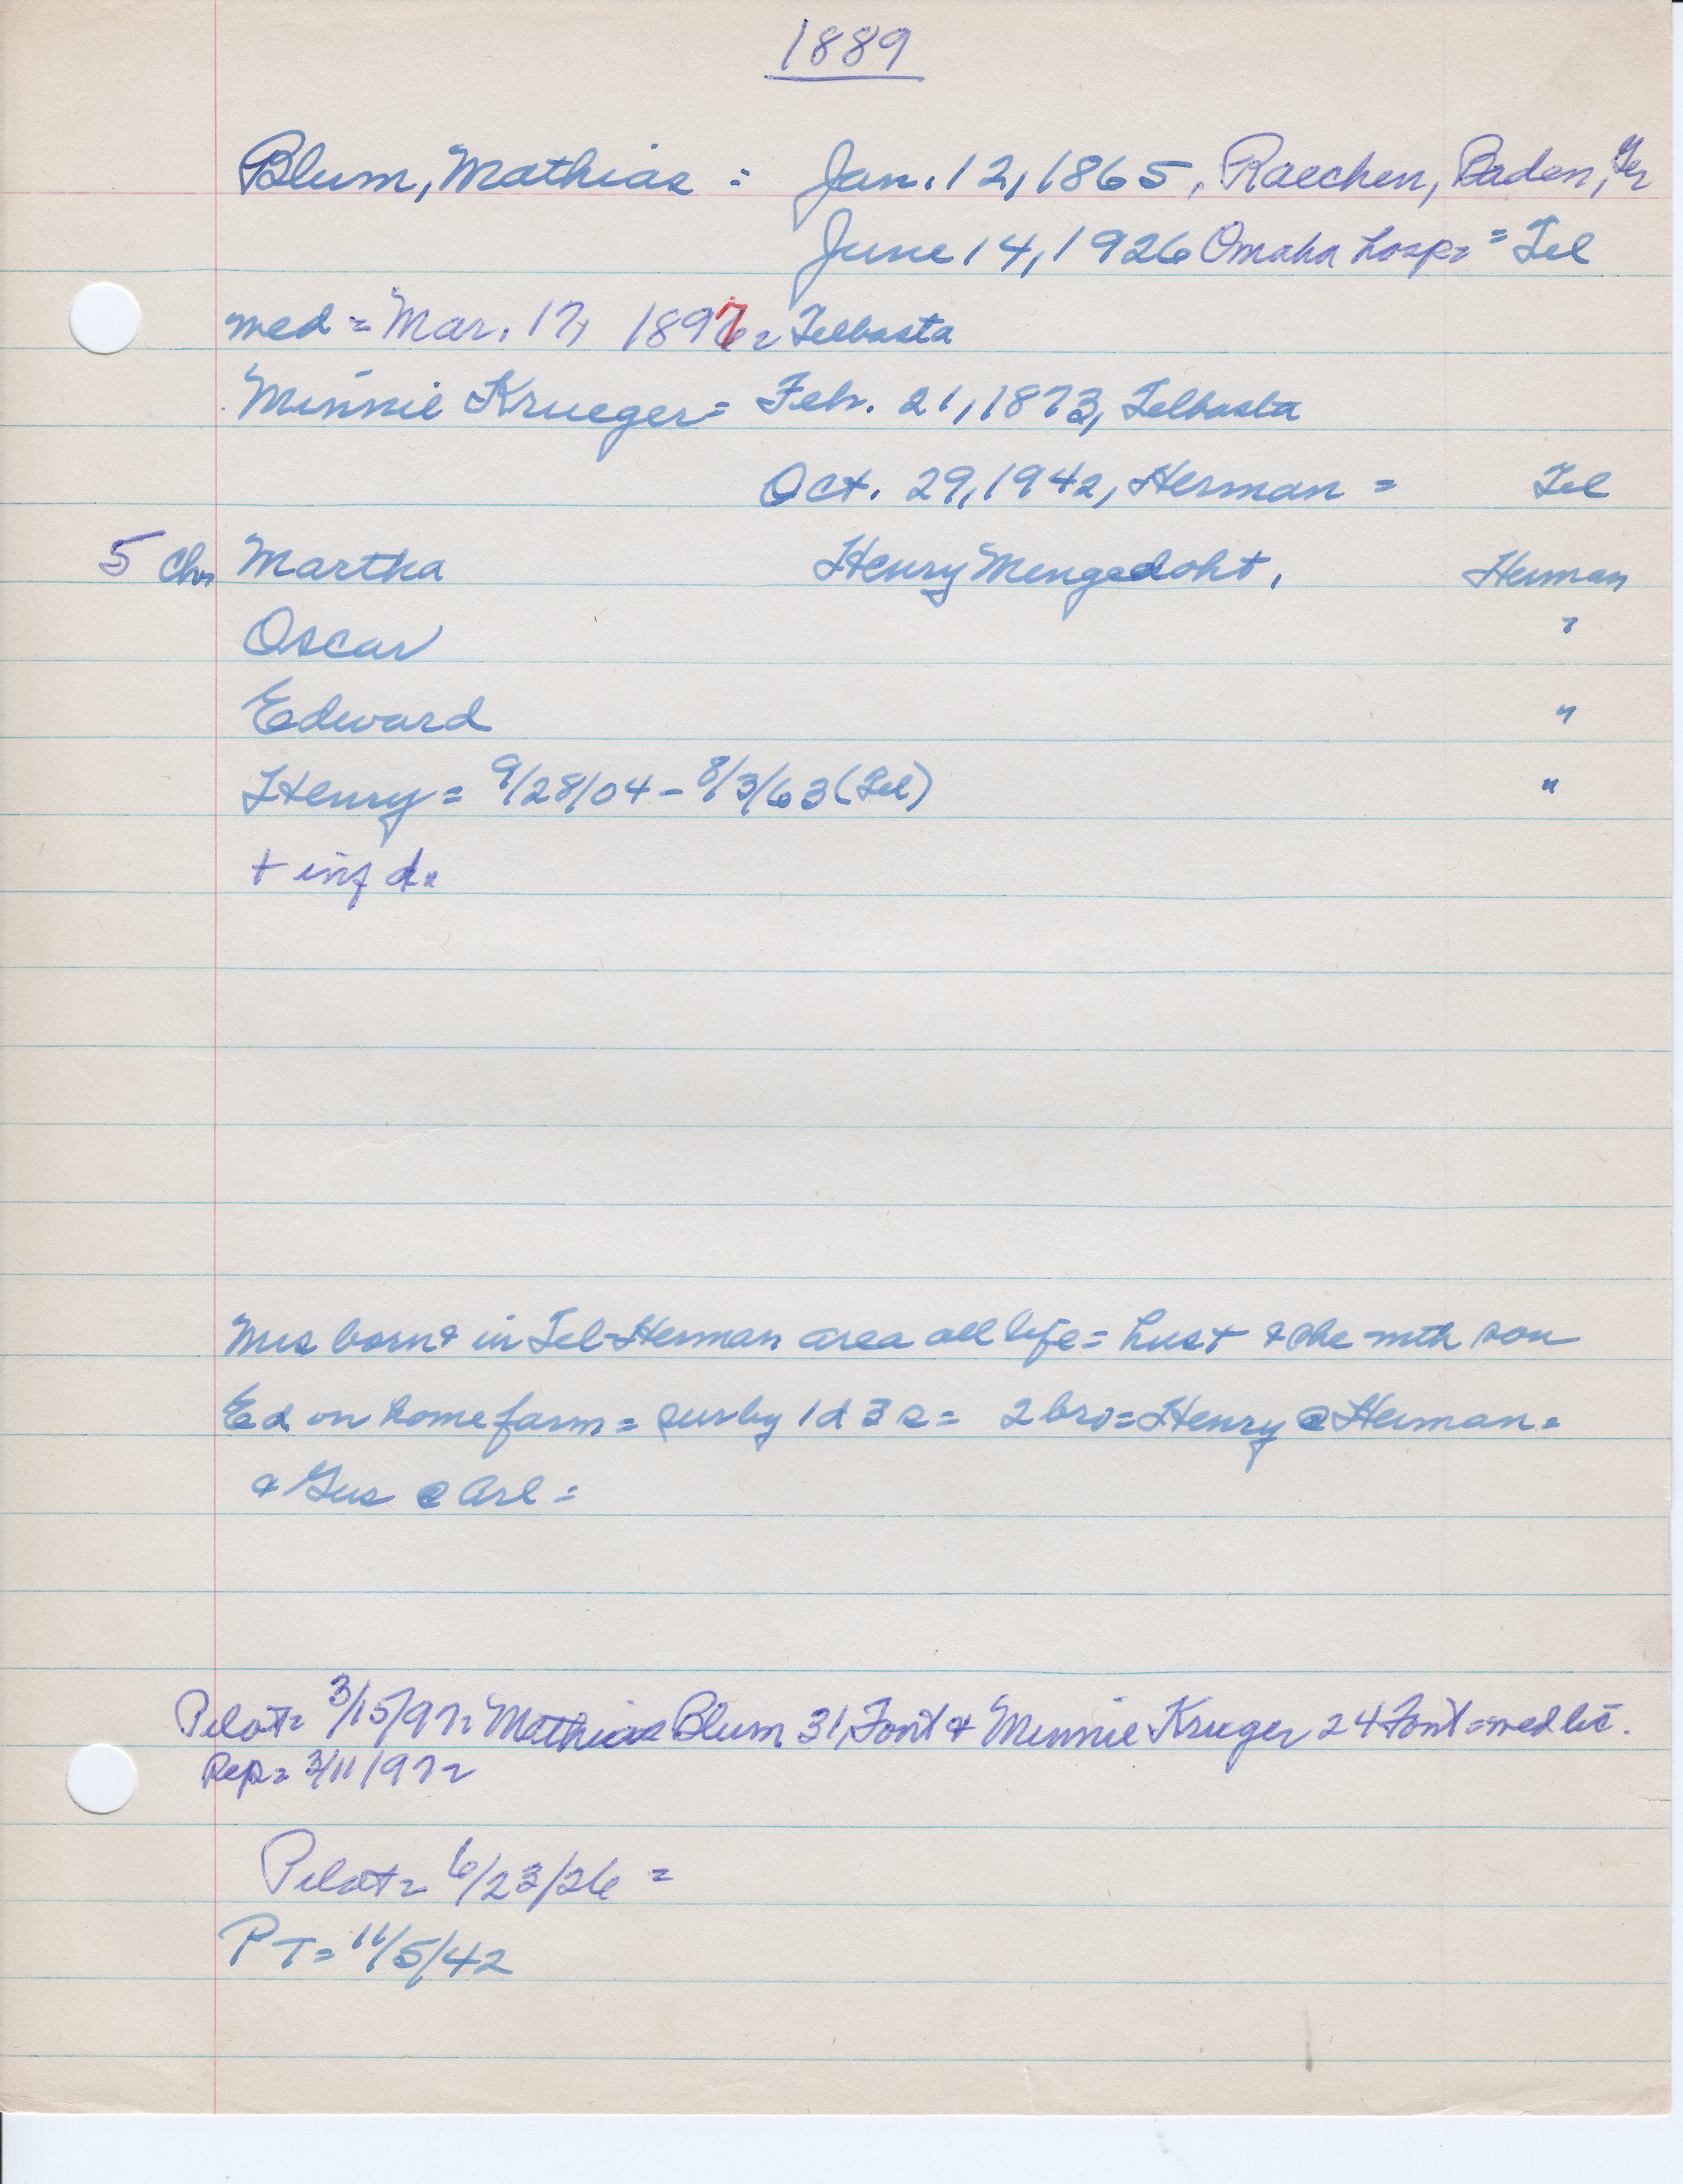 1889
Blum, Mathias = Jan. 12, 1865, Raechen, Baden, Ger
June 14, 1926 Omaha hosp = = Tel
med = Mar. 17, 1897 = Telbasta
Minnie Krueger = Feb. 21, 1873, Telbasta
Oct. 29, 1942, Herman = Tel
5 Ch. Martha Henry Mengedoht, Herman
Oscar "
Edward "
Henry = 9/28/04 - 8/3/63 (Tel) "
+ inf d.
Mrs born & in Tel-Herman area all life = hus + & she mth son
Ed on home farm = sur by 1 d 3 s = 2 bro = Henry @ Herman =
& Gus @ Arl =
Pilot = 3/15/97 = Mathias Blum 31, Font & Minnie Kruger 24 Font = med lic.
Rep = 3/11/97 =
Pilot = 6/23/26 =
PT = 11/5/42